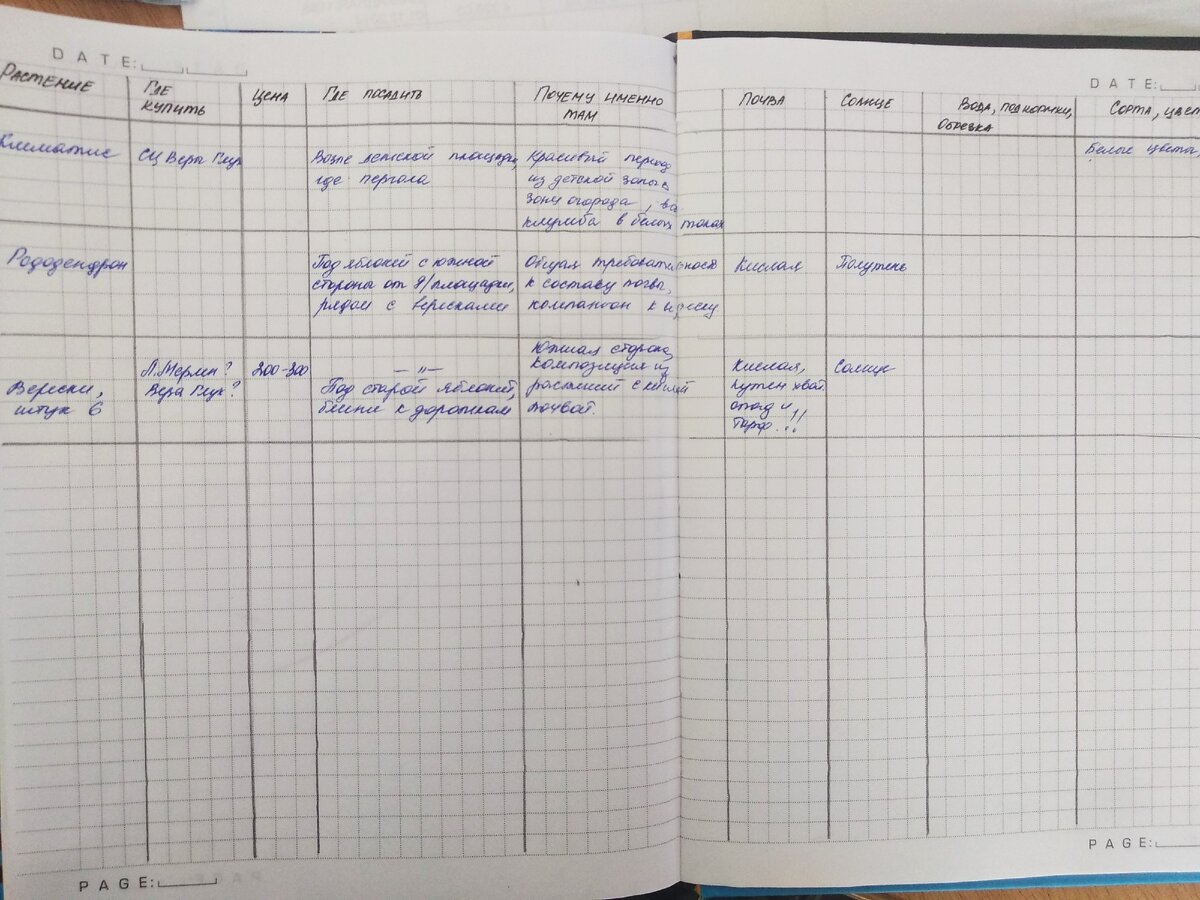 DATE:
РАСТЕНИЕ
ГДЕ
КУПИТЬ
ЦЕНА
ГДЕ ПОСАДИТЬ
ПОЧЕМУ ИМЕННО
ТАМ
Клематис
СЦ Веры Глух
Возле детской площадки,
где пергола
Красивый переход
из детской зоны в
зону огорода, вся
клумба в белых тонах
Рододендрон
Под яблоней с южной
стороны от д/площадки,
рядом с вересками
Общая требовательность
к составу почвы,
компаньон к вереску
Верески,
штук 6
Л.Мерлен?
Вера Глух?
200-300
— " —
Под старой яблоней,
ближе к дорожкам
Южная сторона,
композиция из
растений с кислой
почвой.
PAGE:
DATE:
ПОЧВА
СОЛНЦЕ
ВОДА, ПОДКОРМКИ,
ОБРЕЗКА
СОРТА, ЦВЕТ
Белые цветы,
Кислая
Полутень
Кислая,
нужен хвой
опад и
торф!!
Солнце
PAGE: